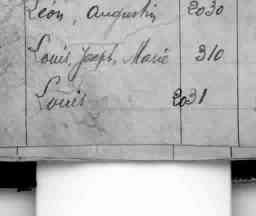 Léon, Augustin 2030
Louis, Joseph, Marie 310
Louis 2031